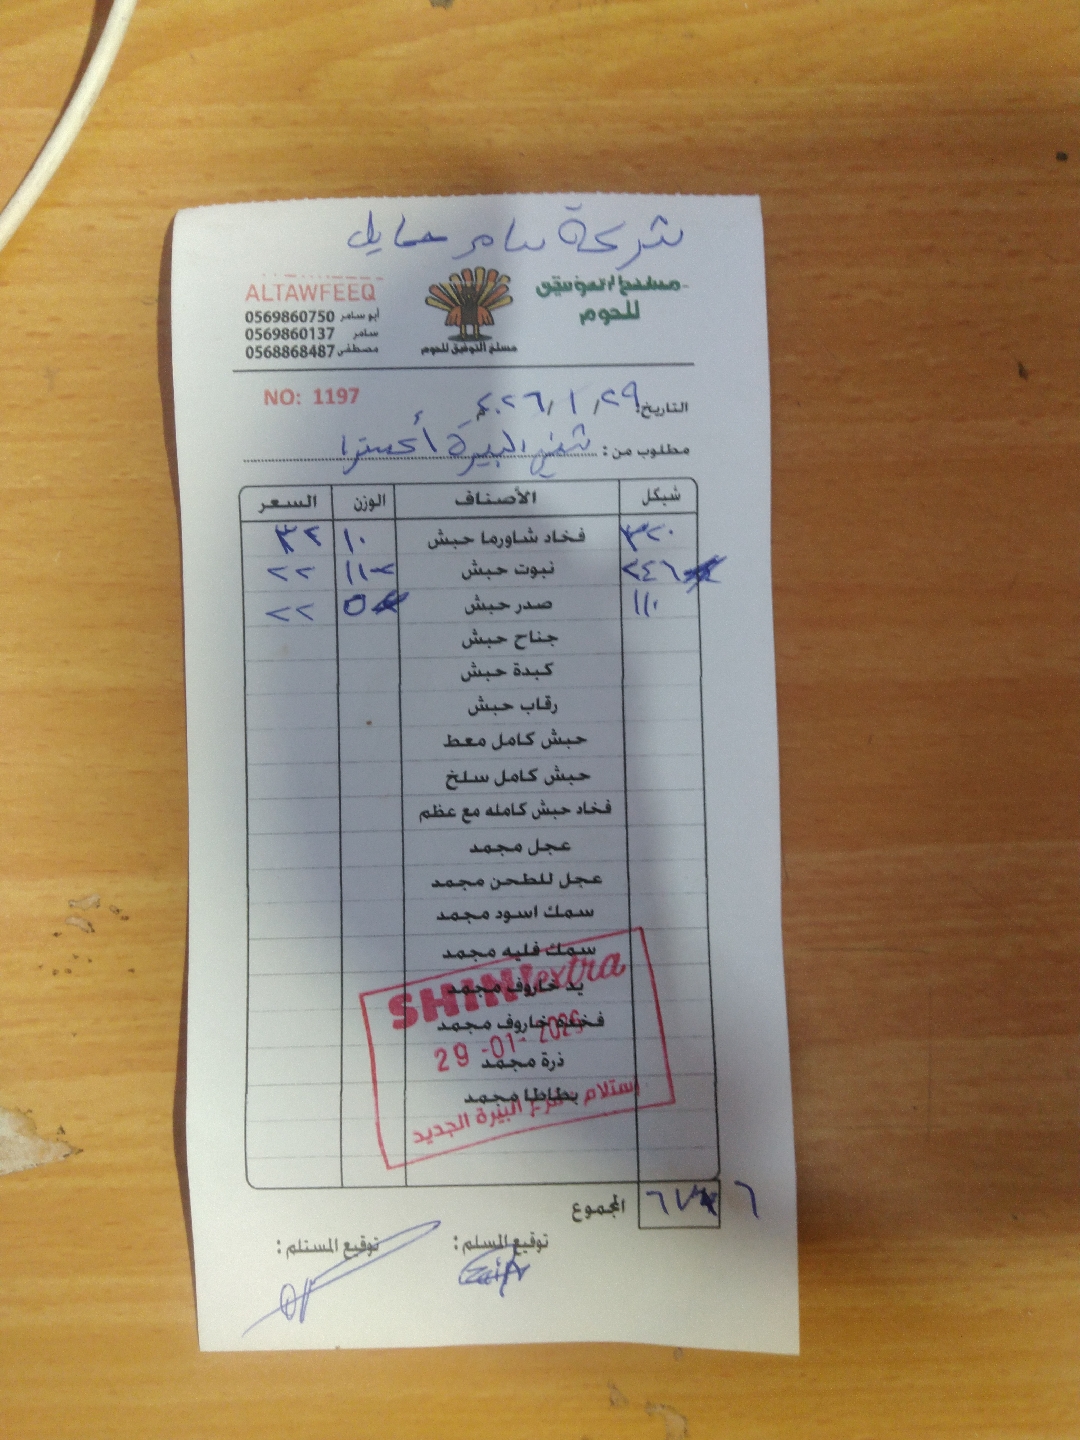 شركة سامر حمايل
مسلخ التوفيق للحوم
ALTAWFEEQ
أبو سامر 0569860750
سامر 0569860137
مصطفى 0568868487
مسلخ التوفيق للحوم
NO: 1197
التاريخ: ٢٩/١/٢٠٢٦
مطلوب من: شني البيرة أكسترا
شيكل الأصناف الوزن السعر
٣٢٠ فخاد شاورما حبش ١٠ ٣٢
٢٤٦ نبوت حبش ١١٢ ٢٢
١١٠ صدر حبش ٥ ٢٢
جناح حبش
كبدة حبش
رقاب حبش
حبش كامل معط
حبش كامل سلخ
فخاد حبش كامله مع عظم
عجل مجمد
عجل للطحن مجمد
سمك اسود مجمد
سمك فليه مجمد
يد خاروف مجمد
فخدة خاروف مجمد
ذرة مجمد
بطاطا مجمد
SHINI extra
29-01-2026
استلام فرع البيرة الجديد
المجموع ٦٧٦
توقيع المسلم:
توقيع المستلم: